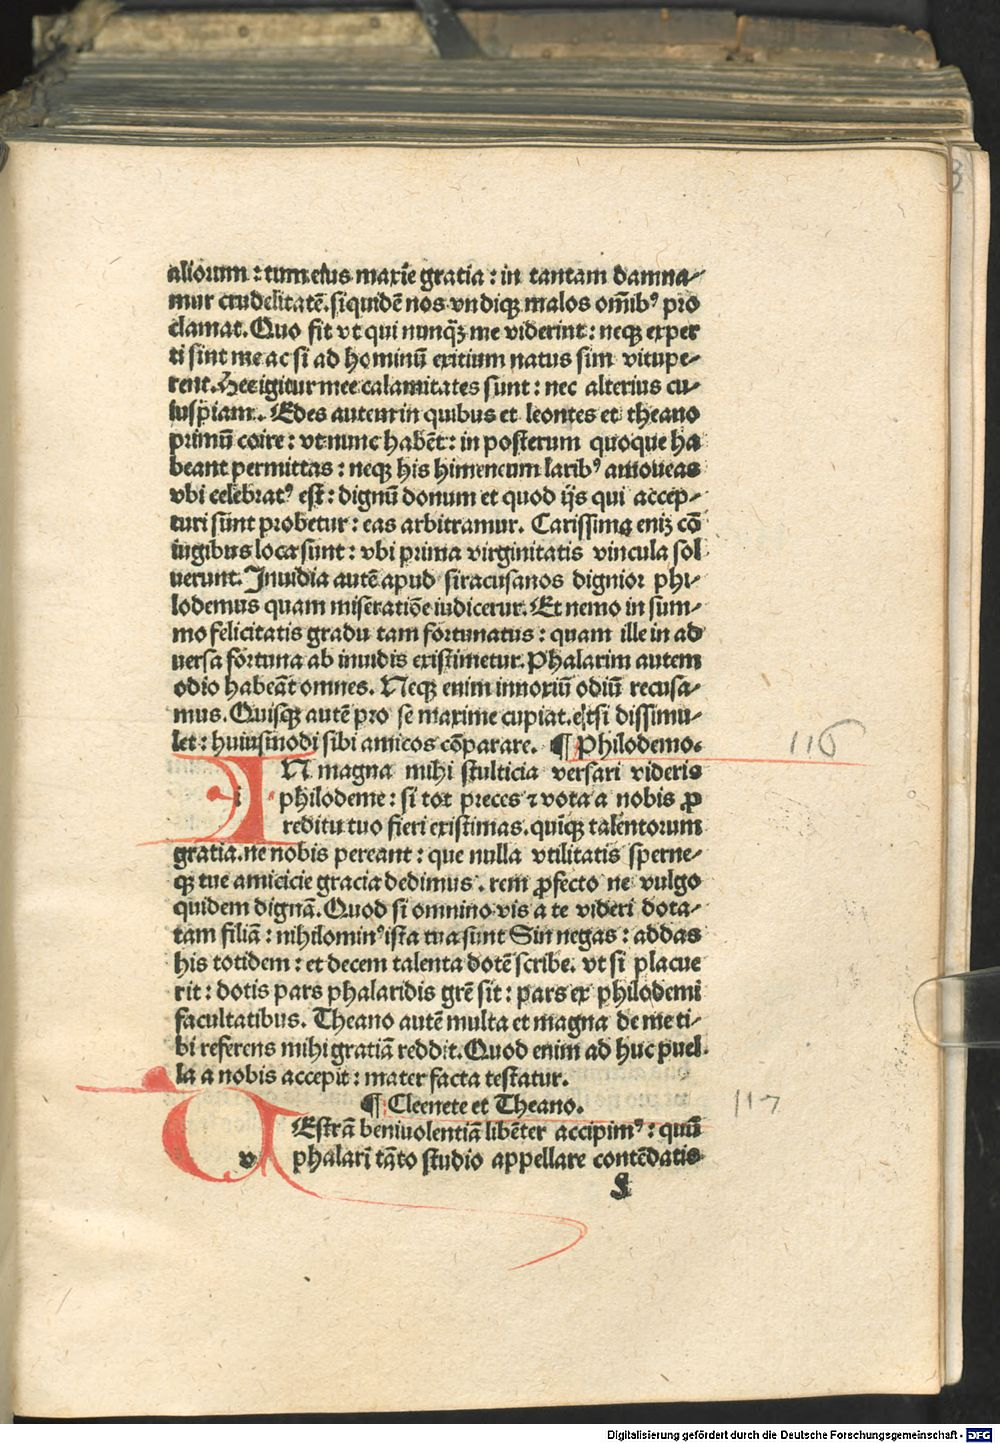 aliorum : tum eius maxīe gratia : in tantam damna-
mur crudelitatē. siquidē nos vndiqꝫ malos om̄ibꝰ pro
clamat. Quo fit vt qui nunq̄ꝫ me viderint : neqꝫ exper
ti sint me ac si ad hominū exitium natus sim vitupe-
rent. Hee igitur mee calamitates sunt : nec alterius cu-
iuspiam. Edes autem in quibus et leontes et theano
primū coire : vt nunc habēt : in posterum quoque ha
beant permittas : neqꝫ his himeneum laribꝰ amoueas
vbi celebratꝰ est : dignū donum et quod ijs qui accep-
turi sunt probetur : eas arbitramur. Carissima eniꝫ cō
iugibus loca sunt : vbi prima virginitatis vincula sol
uerunt. Inuidia autē apud siracusanos dignior phi-
lodemus quam miseratiōe iudicetur. Et nemo in sum-
mo felicitatis gradu tam fortunatus : quam ille in ad
uersa fortuna ab inuidis existimetur. Phalarim autem
odio habeāt omnes. Neqꝫ enim innoxiū odiū recusa-
mus. Quisqꝫ autē pro se maxime cupiat. etsi dissimu-
let : huiusmodi sibi amicos cōparare. ¶ Philodemo.
116
IN magna mihi stulticia versari videris
i
philodeme : si tot preces ⁊ vota a nobis ꝓ
reditu tuo fieri existimas. quīqꝫ talentorum
gratia. ne nobis pereant : que nulla vtilitatis sperne-
qꝫ tue amicicie gracia dedimus. rem ꝓfecto ne vulgo
quidem dignā. Quod si omnino vis a te videri dota-
tam filiā : nihilominꝰ ista tua sunt Sin negas : addas
his totidem : et decem talenta dotē scribe. vt si placue
rit : dotis pars phalaridis grē sit : pars ex philodemi
facultatibus. Theano autē multa et magna de me ti-
bi referens mihi gratiā reddit. Quod enim ad huc puel
la a nobis accepit : mater facta testatur.
¶ Cleenete et Theano.
117
VEstrā beniuolentiā libēter accipimꝰ : quū
v
phalarī tāto studio appellare contēdatis
S
Digitalisierung gefördert durch die Deutsche Forschungsgemeinschaft - DFG